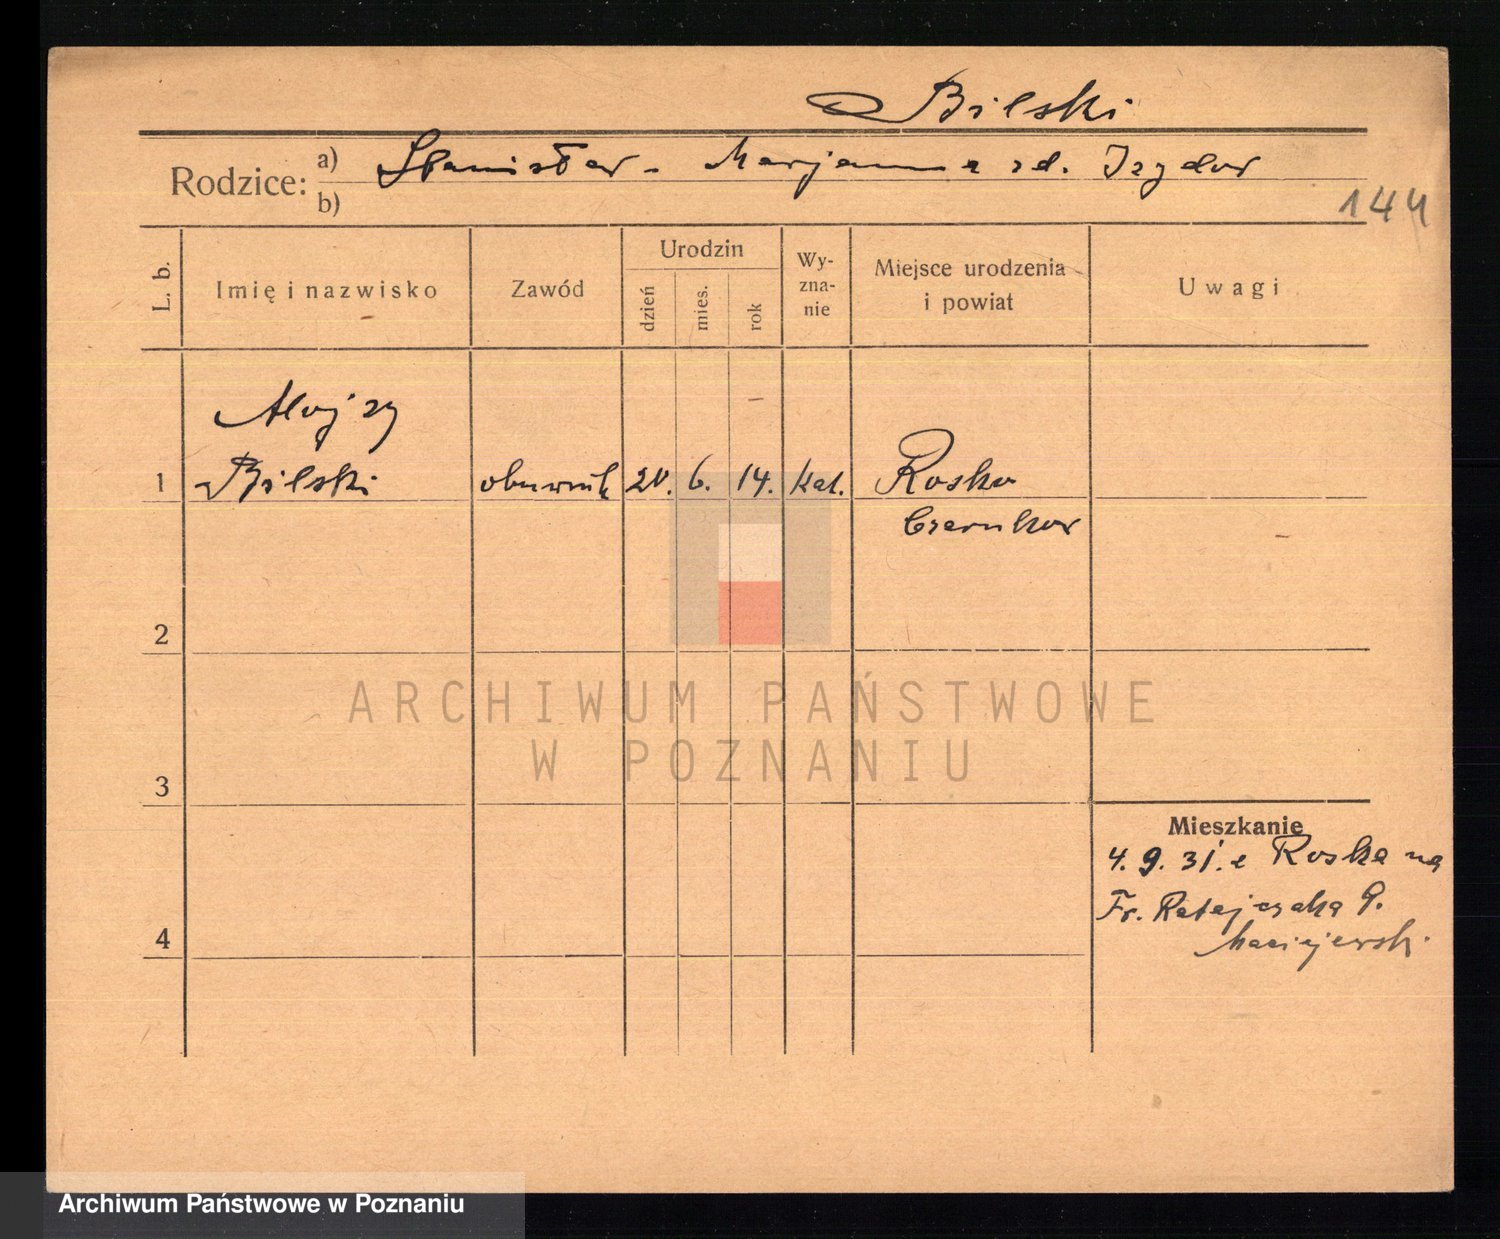 Bilski
Rodzice: a) Stanisław - Marjanna zd. Izydor
b)
144
L. b.
Imię i nazwisko
Zawód
Urodzin
dzień
mies.
rok
Wy-
zna-
nie
Miejsce urodzenia
i powiat
Uwagi
Alojzy
1 Bilski obuwnik 20. 6. 14. kat. Rosko
Czarnków
2
3
4
Mieszkanie
4. 9. 31. z Roska na
Fr. Ratajczaka 9.
Maciejewski
ARCHIWUM PAŃSTWOWE
W POZNANIU
Archiwum Państwowe w Poznaniu